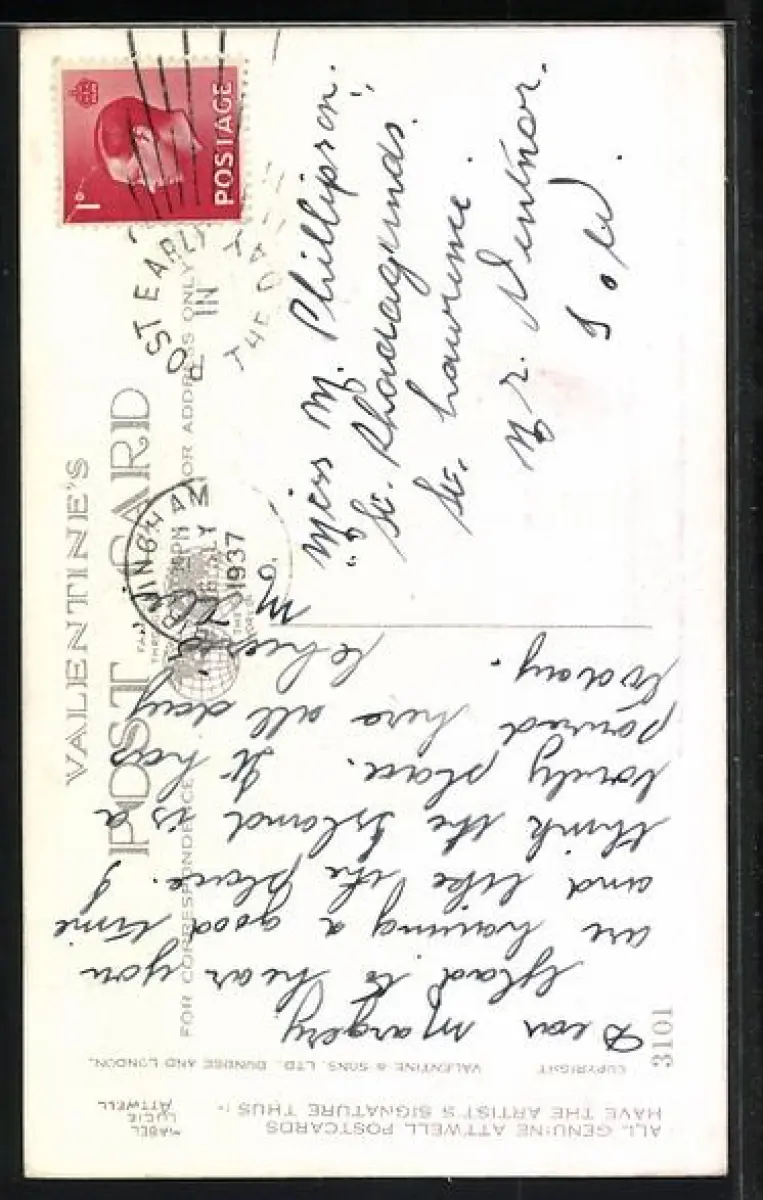 VALENTINE'S
POST CARD
FOR CORRESPONDENCE
FOR ADDRESS ONLY
POSTAGE
1D
POST EARLY
IN
THE DAY
BIRMINGHAM
PM
JLY
1937
ALL GENUINE ATTWELL POSTCARDS
HAVE THE ARTIST'S SIGNATURE THUS :-
MABEL
LUCIE
ATTWELL
COPYRIGHT
VALENTINE & SONS, LTD., DUNDEE AND LONDON.
3101
Dear Margery.
Glad to hear you
are having a good time
and like the place. I
think the Island is a
lovely place. It has
poured here all day
today.
Cheerio
M.
Miss M. Phillipson.
"St. Rhadagunds."
St. Lawrence.
Nr. Ventnor.
I.o.W.